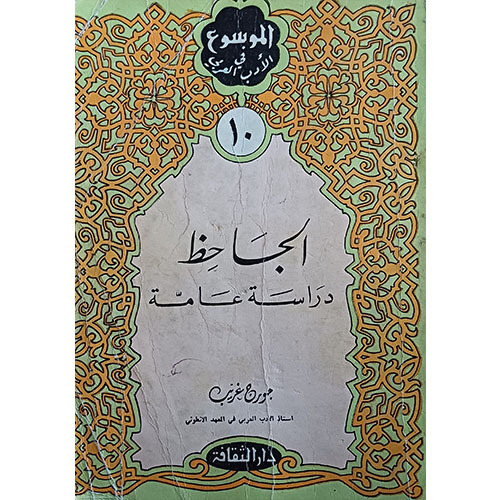 الموسوع
في
الأدب العربي
١٠
الجَاحِظ
دَراسَة عَامَّة
جورج غريّب
استاذ الادب العربي في المعهد الانطوني
دار الثقافة